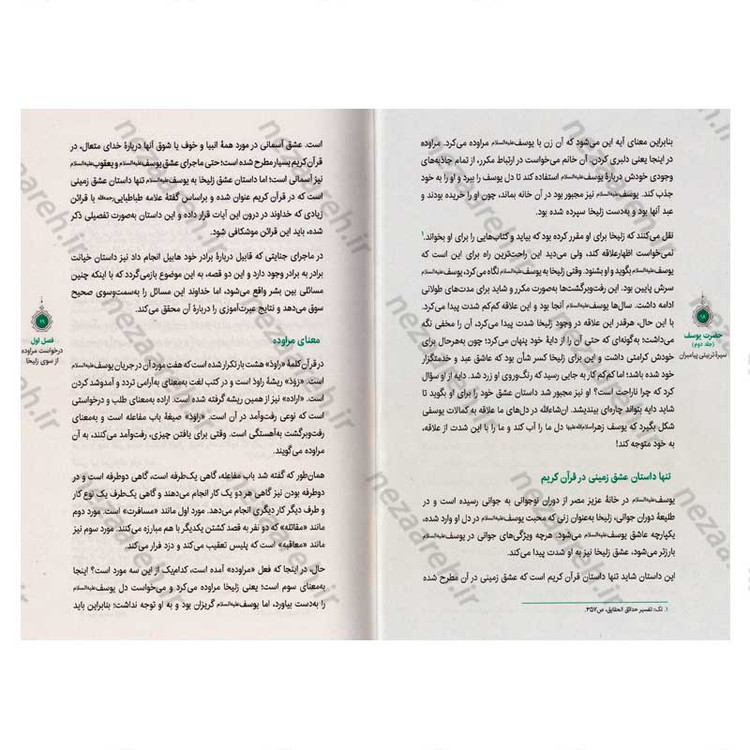 بنابراین معنای آیه این می‌شود که آن زن با یوسف علیه‌السلام مراوده می‌کرد. مراوده
در اینجا یعنی دلبری کردن. آن خانم می‌خواست در ارتباط مکرر، از تمام جاذبه‌های
وجودی خودش دربارهٔ یوسف علیه‌السلام استفاده کند تا دل یوسف را ببرد و او را به خود
جذب کند. یوسف علیه‌السلام نیز مجبور بود در آن خانه بماند، چون او را خریده بودند و
عبد آنها بود و به‌دست زلیخا سپرده شده بود.
نقل می‌کنند که زلیخا برای او مقرر کرده بود که بیاید و کتاب‌هایی را برای او بخواند.۱
نمی‌خواست اظهار علاقه کند، ولی می‌دید این راحت‌ترین راه برای این است که
یوسف علیه‌السلام بگوید و او بشنود. وقتی زلیخا به یوسف علیه‌السلام نگاه می‌کرد، یوسف علیه‌السلام
سرش پایین بود. این رفت‌وبرگشت‌ها به‌صورت مکرر و شاید برای مدت‌های طولانی
ادامه داشت. سال‌ها یوسف علیه‌السلام آنجا بود و این علاقه کم‌کم شدت پیدا می‌کرد.
با این حال، هرقدر این علاقه در وجود زلیخا شدت پیدا می‌کرد، آن را مخفی نگه
می‌داشت؛ به‌گونه‌ای که حتی آن را از دایهٔ خود پنهان می‌کرد؛ چون به‌هرحال برای
خودش کرامتی داشت و این برای زلیخا کسر شأن بود که عاشق عبد و خدمتگزار
خود شده باشد؛ اما کم‌کم کار به جایی رسید که رنگ‌وروی او زرد شد. دایه از او سؤال
کرد که چرا ناراحت است؟ او نیز مجبور شد داستان عشق خود را برای او بگوید تا
شاید دایه بتواند چاره‌ای بیندیشد. ان‌شاءالله در دل‌های ما علاقه به کمالات یوسفی
شکل بگیرد که یوسف زهرا سلام‌الله‌علیها دل ما را آب کند و ما را با این شدت از علاقه،
به خود متوجه کند!
تنها داستان عشق زمینی در قرآن کریم
یوسف علیه‌السلام در خانهٔ عزیز مصر از دوران نوجوانی به جوانی رسیده است و در
طلیعهٔ دوران جوانی، زلیخا به‌عنوان زنی که محبت یوسف علیه‌السلام در دل او وارد شده،
یکپارچه عاشق یوسف علیه‌السلام می‌شود. هرچه ویژگی‌های جوانی در یوسف علیه‌السلام
بارزتر می‌شود، عشق زلیخا نیز به او شدت پیدا می‌کند.
این داستان شاید تنها داستان قرآن کریم است که عشق زمینی در آن مطرح شده
۱. نک: تفسیر حدائق الحقایق، ص۳۵۷.
۱۸
حضرت یوسف
(جلد دوم)
سیرهٔ تربیتی پیامبران
است. عشق آسمانی در مورد همهٔ انبیا و خوف یا شوق آنها دربارهٔ خدای متعال، در
قرآن کریم بسیار مطرح شده است؛ حتی ماجرای عشق یوسف علیه‌السلام و یعقوب علیه‌السلام
نیز آسمانی است؛ اما داستان عشق زلیخا به یوسف علیه‌السلام تنها داستان عشق زمینی
است که در قرآن کریم عنوان شده و براساس گفتهٔ علامه طباطبایی رحمه‌الله با قرائن
زیادی که خداوند در درون این آیات قرار داده و این داستان به‌صورت تفصیلی ذکر
شده، باید این قرائن موشکافی شود.
در ماجرای جنایتی که قابیل دربارهٔ برادر خود هابیل انجام داد نیز داستان خیانت
برادر به برادر وجود دارد و این دو قصه، به این موضوع بازمی‌گردد که با اینکه چنین
مسائلی بین بشر واقع می‌شود، اما خداوند این مسائل را به‌سمت‌وسوی صحیح
سوق می‌دهد و نتایج عبرت‌آموزی را دربارهٔ آن محقق می‌کند.
معنای مراوده
در قرآن کلمهٔ «راوَدَ» هشت بار تکرار شده است که هفت مورد آن در جریان یوسف علیه‌السلام
است. «رَوَدَ» ریشهٔ راود است و در کتب لغت به‌معنای به‌آرامی تردد و آمدوشد کردن
است. «اراده» نیز از همین ریشه گرفته شده است. اراده به‌معنای طلب و درخواستی
است که نوعی رفت‌وآمد در آن است. «راوَدَ» صیغهٔ باب مفاعله است و به‌معنای
رفت‌وبرگشت به‌آهستگی است. وقتی برای یافتن چیزی، رفت‌وآمد می‌کنند، به آن
مراوده می‌گویند.
همان‌طور که گفته شد باب مفاعله، گاهی یک‌طرفه است، گاهی دوطرفه است و در
دوطرفه بودن نیز گاهی هر دو یک کار انجام می‌دهند و گاهی یک‌طرف یک نوع کار
و طرف دیگر کار دیگری انجام می‌دهد. مورد اول مانند «مسافرت» است. مورد دوم
مانند «مقاتله» که دو نفر به قصد کشتن یکدیگر با هم مبارزه می‌کنند. مورد سوم نیز
مانند «معاقبه» است که پلیس تعقیب می‌کند و دزد فرار می‌کند.
حال، در اینجا که فعل «مراوده» آمده است، کدام‌یک از این سه مورد است؟ اینجا
به‌معنای سوم است؛ یعنی زلیخا مراوده می‌کرد و می‌خواست دل یوسف علیه‌السلام
را به‌دست بیاورد، اما یوسف علیه‌السلام گریزان بود و به او توجه نداشت؛ بنابراین باید
۱۹
فصل اول
درخواست مراوده
از سوی زلیخا
nezaareh.ir